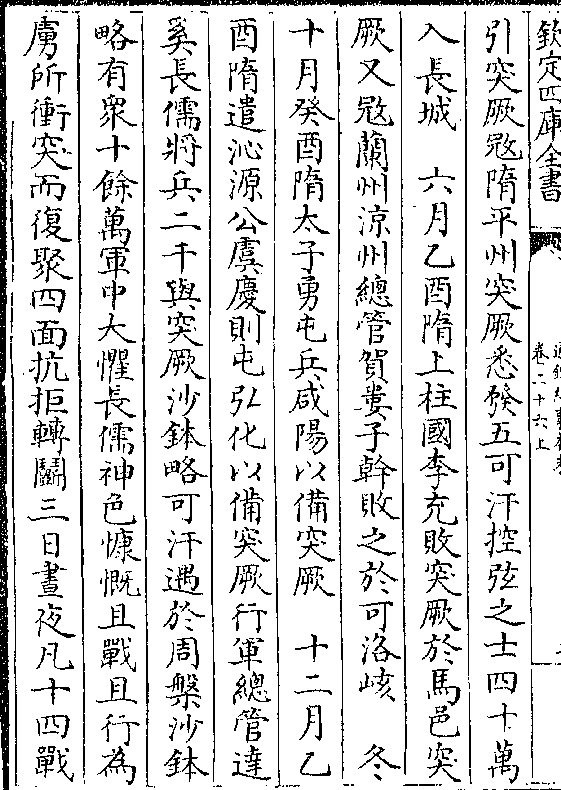 欽定四庫全書
卷二十六上
引突厥宼隋平州突厥悉發五可汗控弦之士四十萬
入長城　六月乙酉隋上柱國李充敗突厥於馬邑突
厥又宼蘭州涼州總管賀婁子幹敗之於可洛峐　冬
十月癸酉隋太子勇屯兵咸陽以備突厥　十二月乙
酉隋遣沁源公虞慶則屯弘化以備突厥行軍總管達
奚長儒將兵二千與突厥沙鉢略可汗遇於周槃沙鉢
略有衆十餘萬軍中大懼長儒神色慷慨且戰且行為
虜所衝突而復聚四面抗拒轉鬬三日晝夜凡十四戰